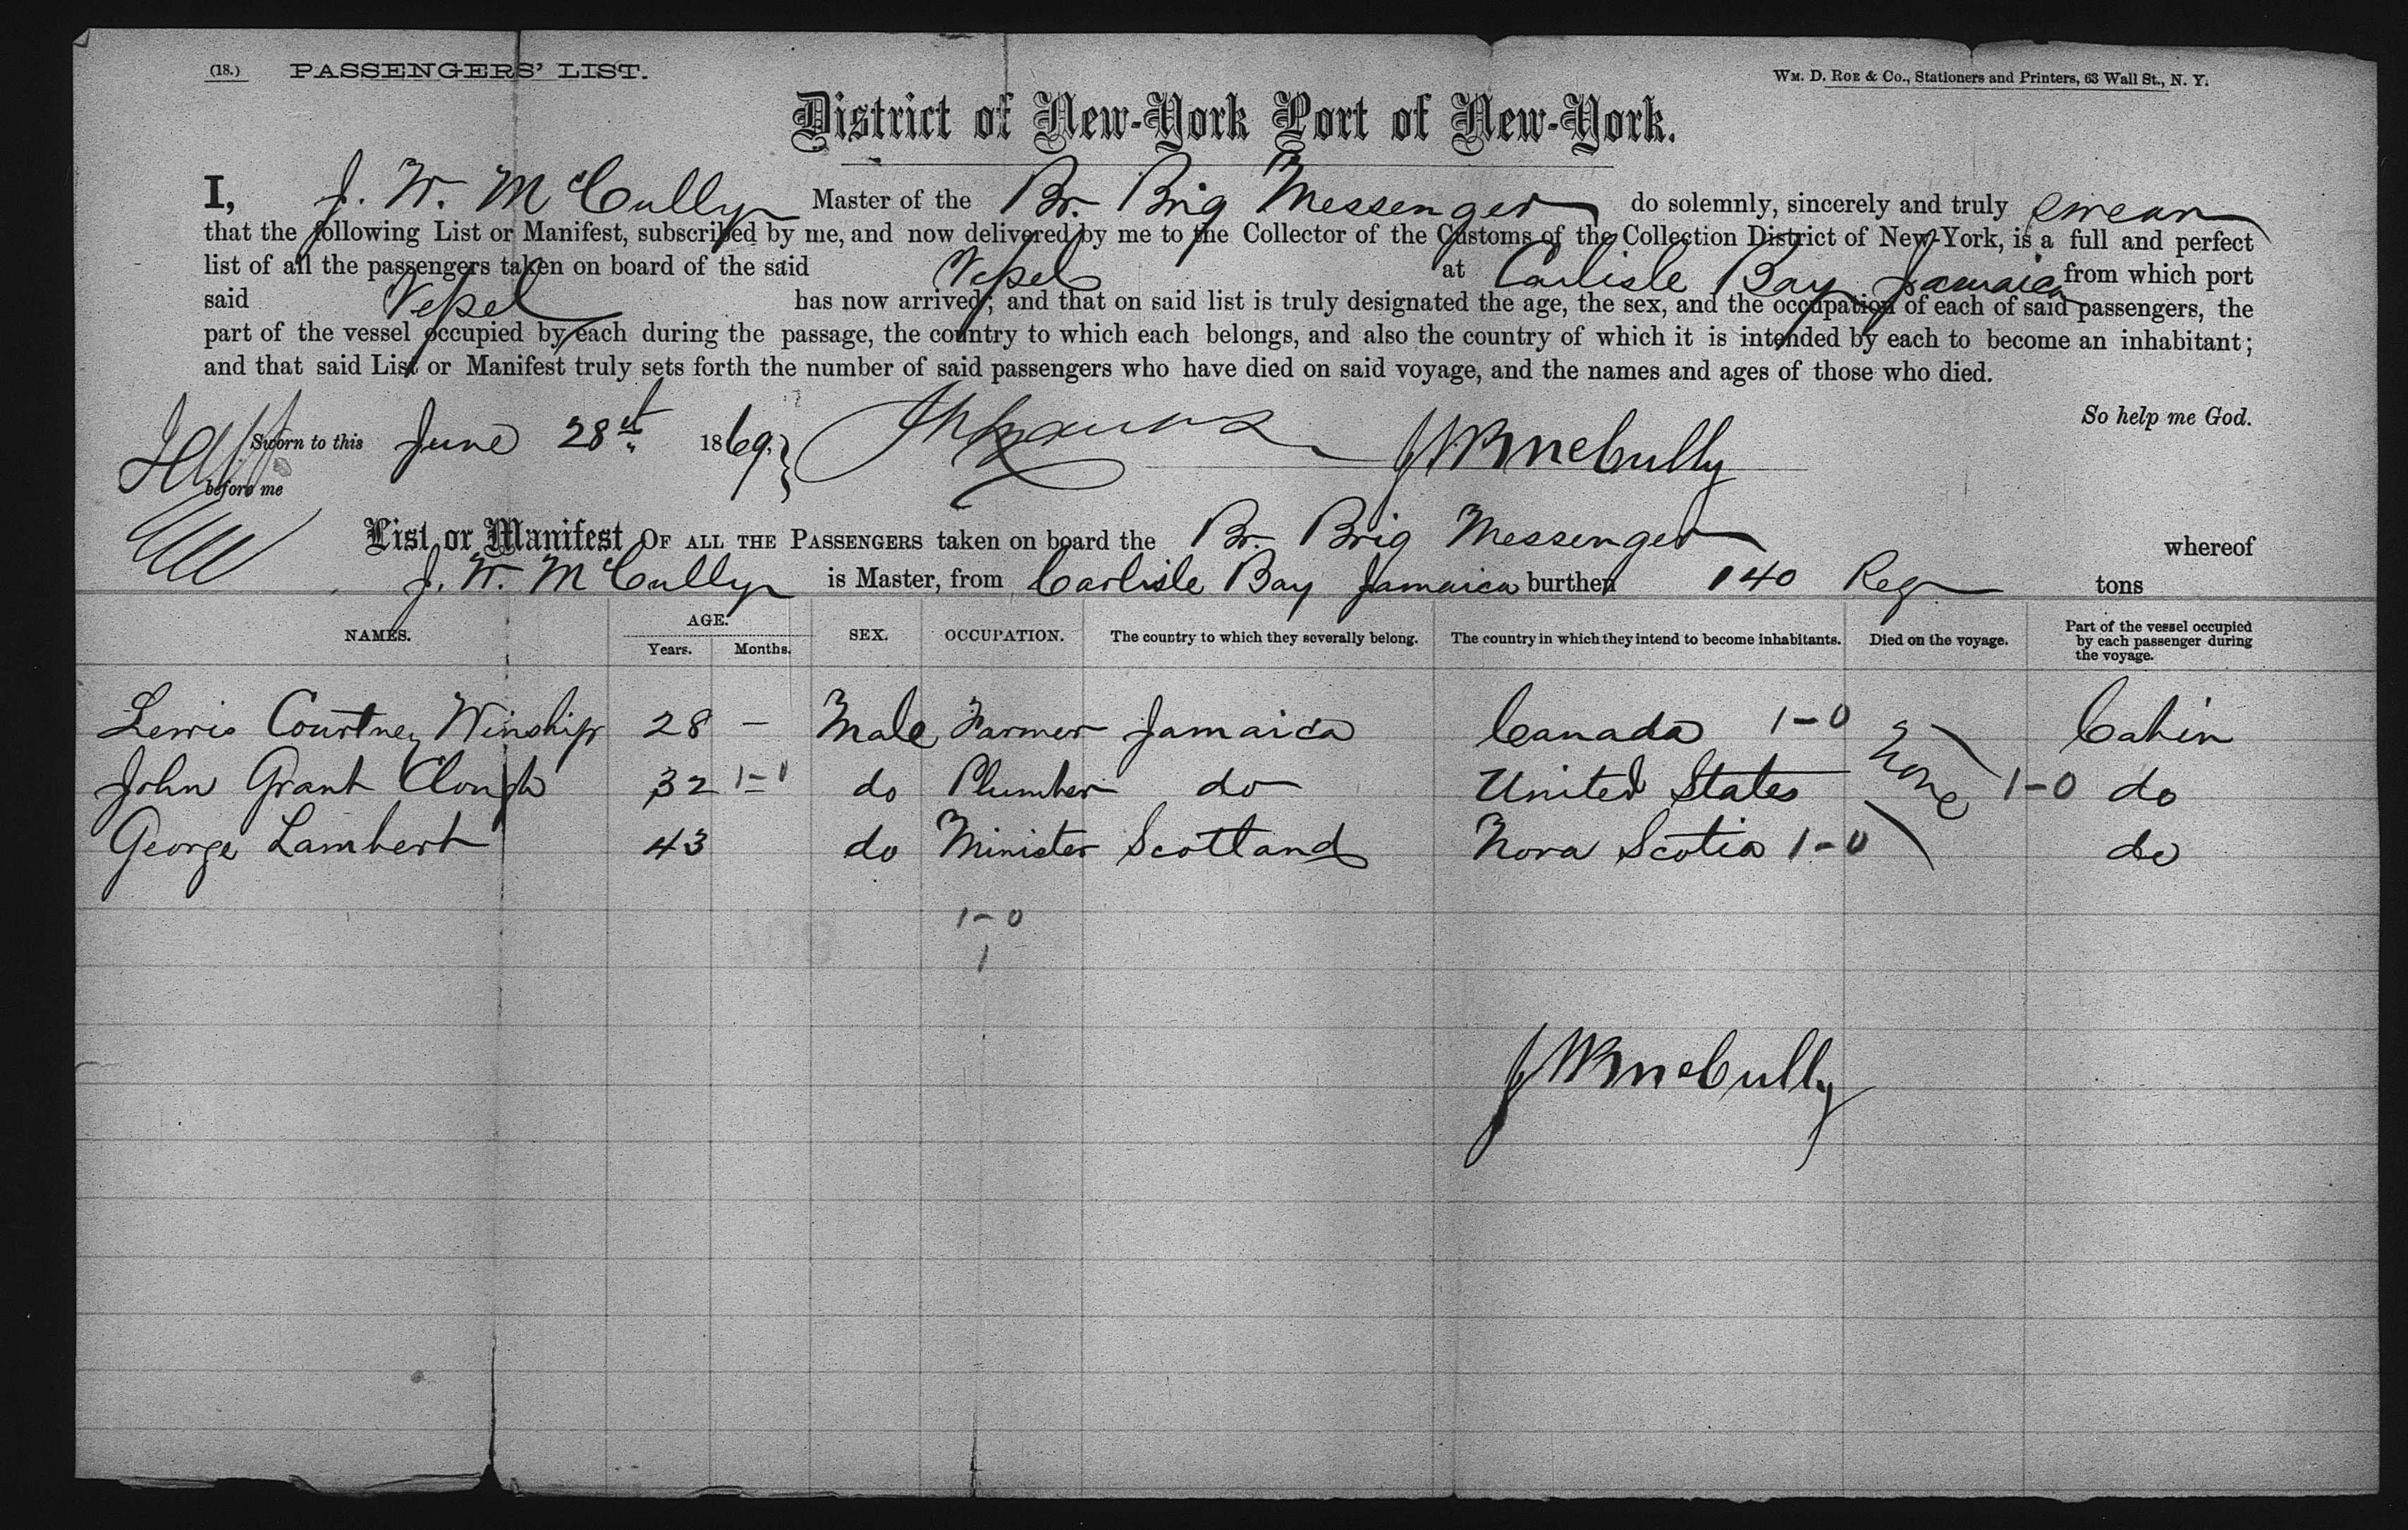 (18.) PASSENGERS' LIST.
WM. D. ROE & Co., Stationers and Printers, 63 Wall St., N. Y.
District of New-York Port of New-York.
I, J. W. McCully Master of the Br. Brig Messenger do solemnly, sincerely and truly swear
that the following List or Manifest, subscribed by me, and now delivered by me to the Collector of the Customs of the Collection District of New-York, is a full and perfect
list of all the passengers taken on board of the said Vessel at Carlisle Bay Jamaica from which port
said Vessel has now arrived; and that on said list is truly designated the age, the sex, and the occupation of each of said passengers, the
part of the vessel occupied by each during the passage, the country to which each belongs, and also the country of which it is intended by each to become an inhabitant;
and that said List or Manifest truly sets forth the number of said passengers who have died on said voyage, and the names and ages of those who died.
So help me God.
Sworn to this June 28th 1869. JWMcCully
before me
List or Manifest OF ALL THE PASSENGERS taken on board the Br. Brig Messenger whereof
J. W. McCully is Master, from Carlisle Bay Jamaica burthen 140 Reg tons
NAMES. AGE. Years. Months. SEX. OCCUPATION. The country to which they severally belong. The country in which they intend to become inhabitants. Died on the voyage. Part of the vessel occupied by each passenger during the voyage.
Lewis Courtney Winship 28 — Male Farmer Jamaica Canada 1-0 Cabin
John Grant Clough 32 1-0 do Plumber do United States None 1-0 do
George Lambert 43 do Minister Scotland Nova Scotia 1-0 do
1-0
1
JWMcCully